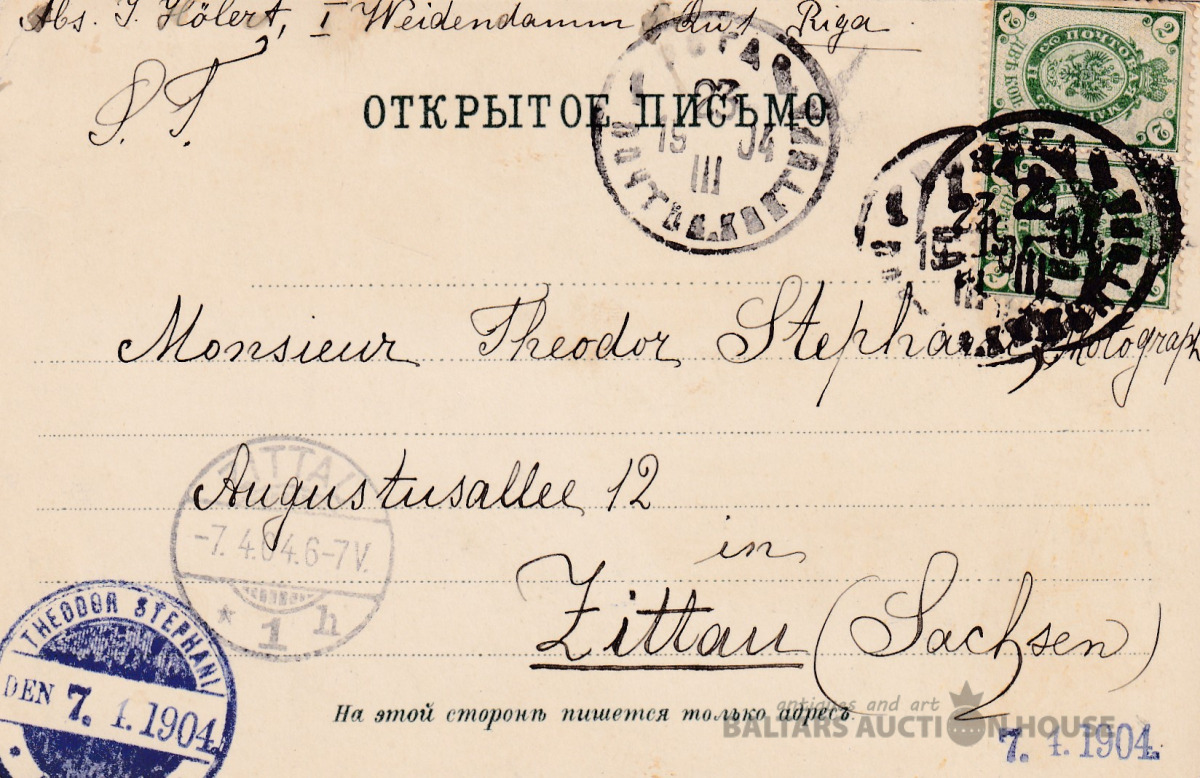 Abs. J. Hölert, I Weidendamm Riga
S. T.
2
2
2
2
РИГА
23
15 04
III
ПОЧТОВ. КОНТОРА
ОТКРЫТОЕ ПИСЬМО
23
15
III
04
Monsieur Theodor Stephani, Photograph
Augustusallee 12
in
Zittau (Sachsen)
ZITTAU
-7.4.04.6-7V.
* 1 h
THEODOR STEPHANI
DEN 7. 4. 1904.
На этой сторонѣ пишется только адресъ.
antiques and art
BALTARS AUCTION HOUSE
7. 4. 1904.